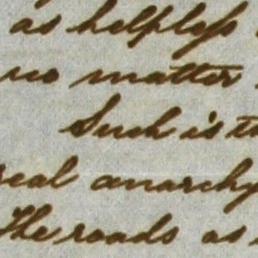 as helpless
no matter
Such is to
real anarchy
The roads as